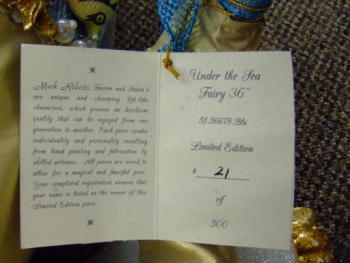 Mark Roberts Fairies and Santa's
are unique and charming life-like
characters, which possess an heirloom
quality that can be enjoyed from one
generation to another. Each piece exudes
individuality and personality resulting
from hand painting and fabrication by
skilled artisans. All pieces are wired to
allow for a magical and fanciful pose.
Your completed registration ensures that
your name is listed as the owner of this
Limited Edition piece.
Under the Sea
Fairy 36"
51-56678-Blu
Limited Edition
# 21
of
500